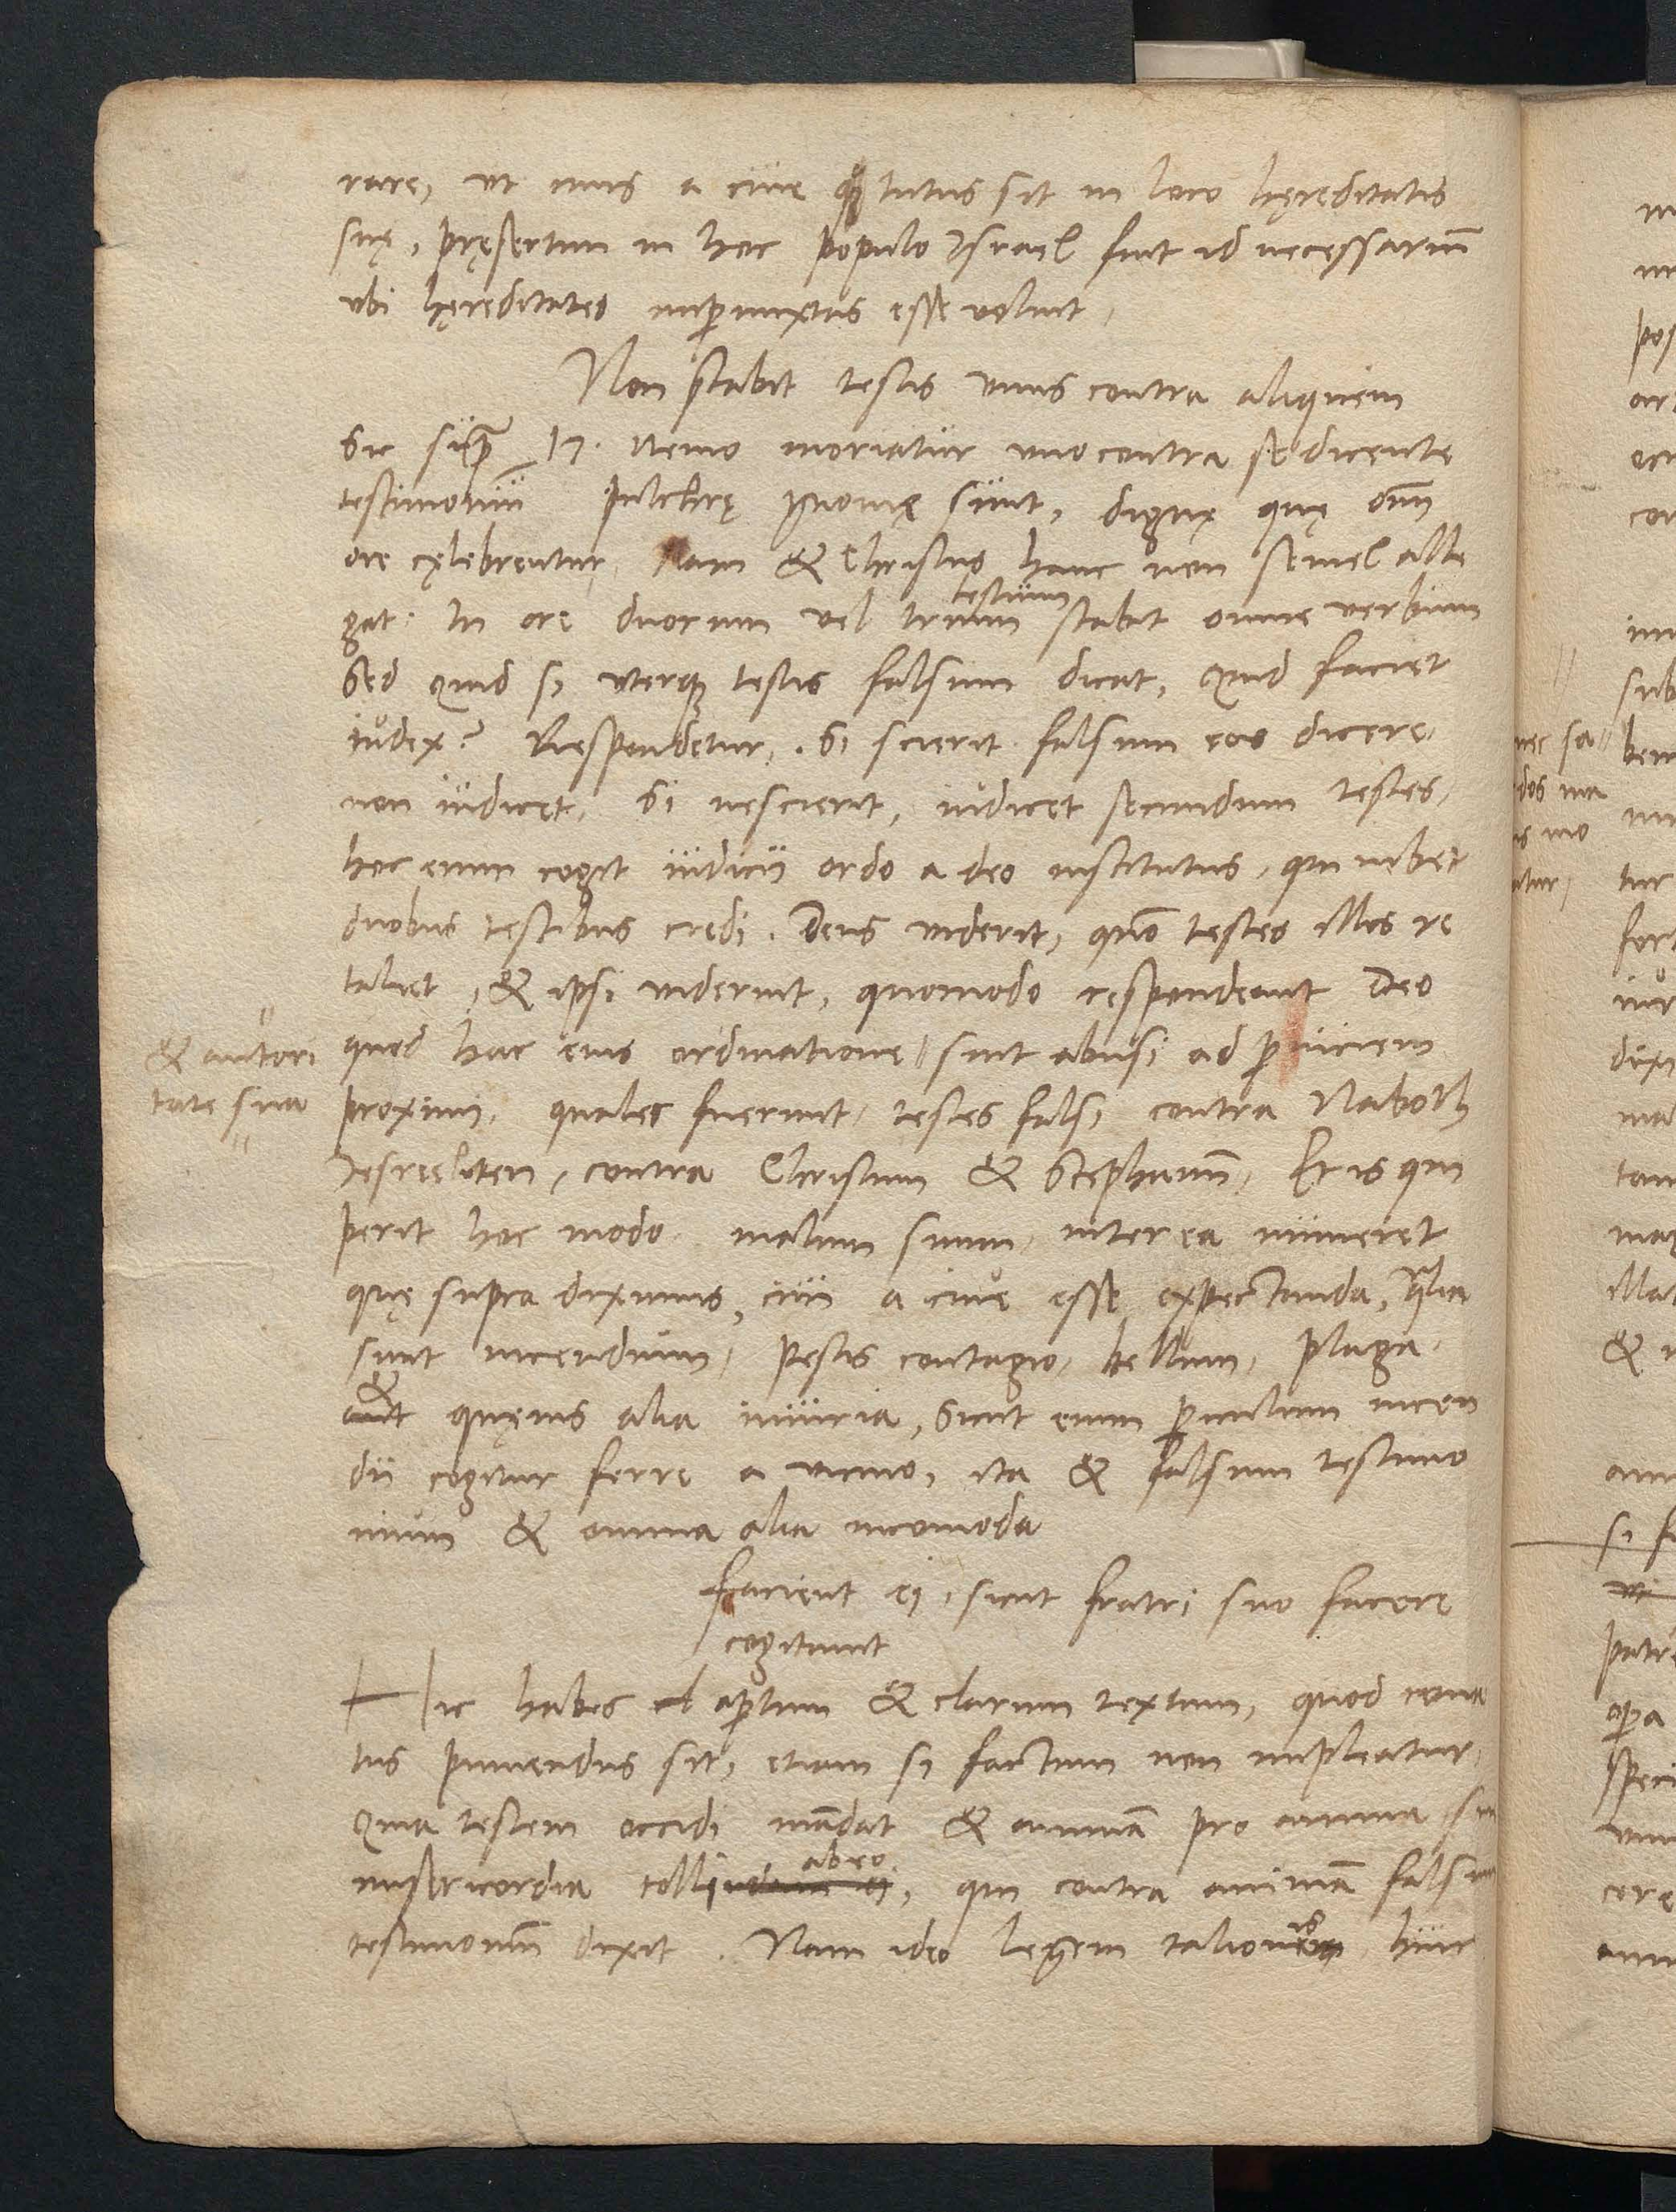 rare, ut ciuis a ciue tutus sit in loco hęreditatis
suę, pręsertim in hoc populo Israel fuit id necessariū
ubi hęreditates impermixtas esse voluit,
Non stabit testis unus contra aliquem
Sic supra 17. Nemo moriatur uno contra se dicente
testimoniū Pulchrę gnomę sunt, dignę quę omni
ore cęlebrentur, Nam & Christus hanc non semel alle
gat: In ore duorum vel trium testium stabit omne verbum
Sed quid si uterq testis falsum dicat, Quid faciet
iudex? Respondetur, Si scierit falsum eos dicere,
non iudicet, Si nescierit, iudicet secundum testes,
hoc enim cogit iudicii ordo a deo institutus, qui iubet
duobus testibus credi. Deus uiderit, quō testes illos re
taliet, & ipsi uiderint, quomodo respondeant Deo
quod hac eius ordinatione || sint abusi ad perniciem
& autori
tate sua
proximi, quales fuerunt testes falsi contra Naboth
Jesreeliten, contra Christum & Stephanū, Et is qui
perit hoc modo malum suum inter ea numeret
quę supra diximus, ciui a ciue esse expectanda, qualia
sunt incendium, pestis contagio, bellum, plaga
& quęuis alia iniuria, Sicut enim periculum incen
dii cogitur ferre a uicino, ita & falsum testimo
nium & omnia alia incomoda
Facient ei, sicut fratri suo facere
cogitauit
Hic habes apertum & clarum textum, quod cona
tus puniendus sit, etiam si factum non impleatur,
Quia testem occidi mādat & animā pro anima sine
misericordia tolli ab eo, qui contra animā falsum
testimoniū dixit. Nam ideo legem talionis huic